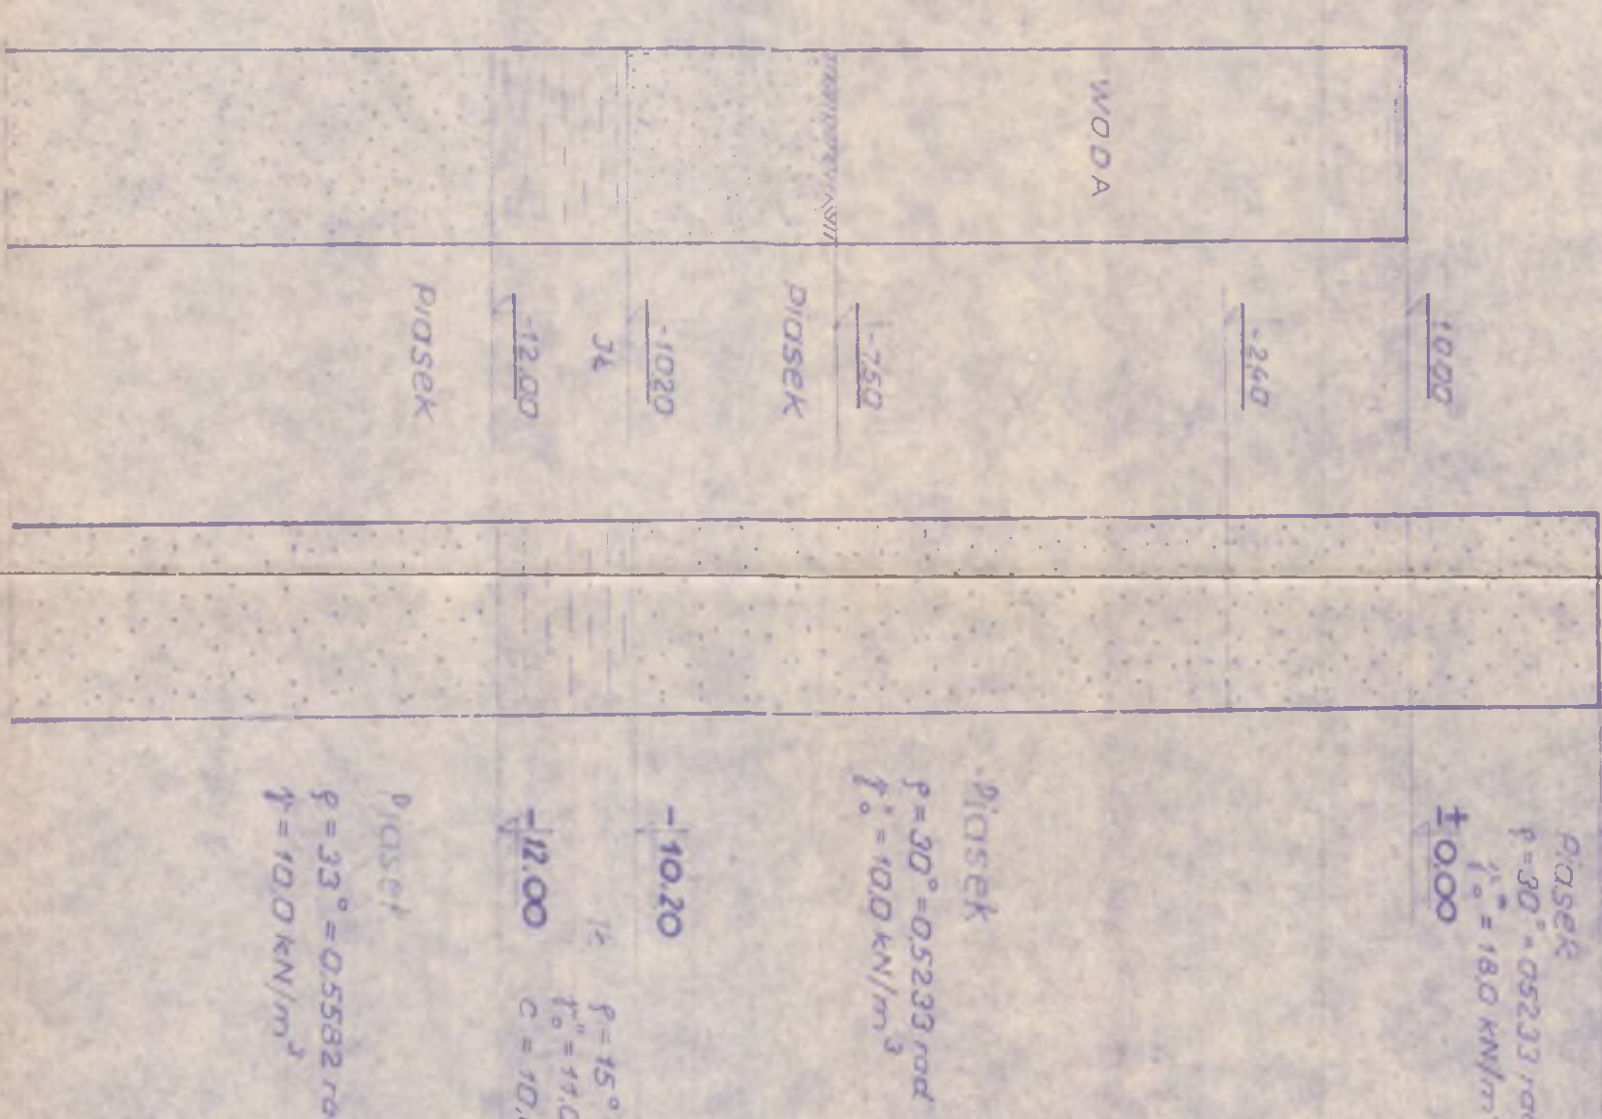 WODA
±0.00
-2.40
-7.50
Piasek
-10.20
Ił
-12.00
Piasek
Piasek
ρ=30°=0.5233
= 18.0 kN/m
±0.00
Piasek
ρ=30°=0.5233 rad
γ₀'' = 10.0 kN/m³
-10.20
Ił
ρ=15°
γ₀'' = 11.0
c = 10.
-12.00
Piasek
ρ=33°=0.5582
γ = 10.0 kN/m³